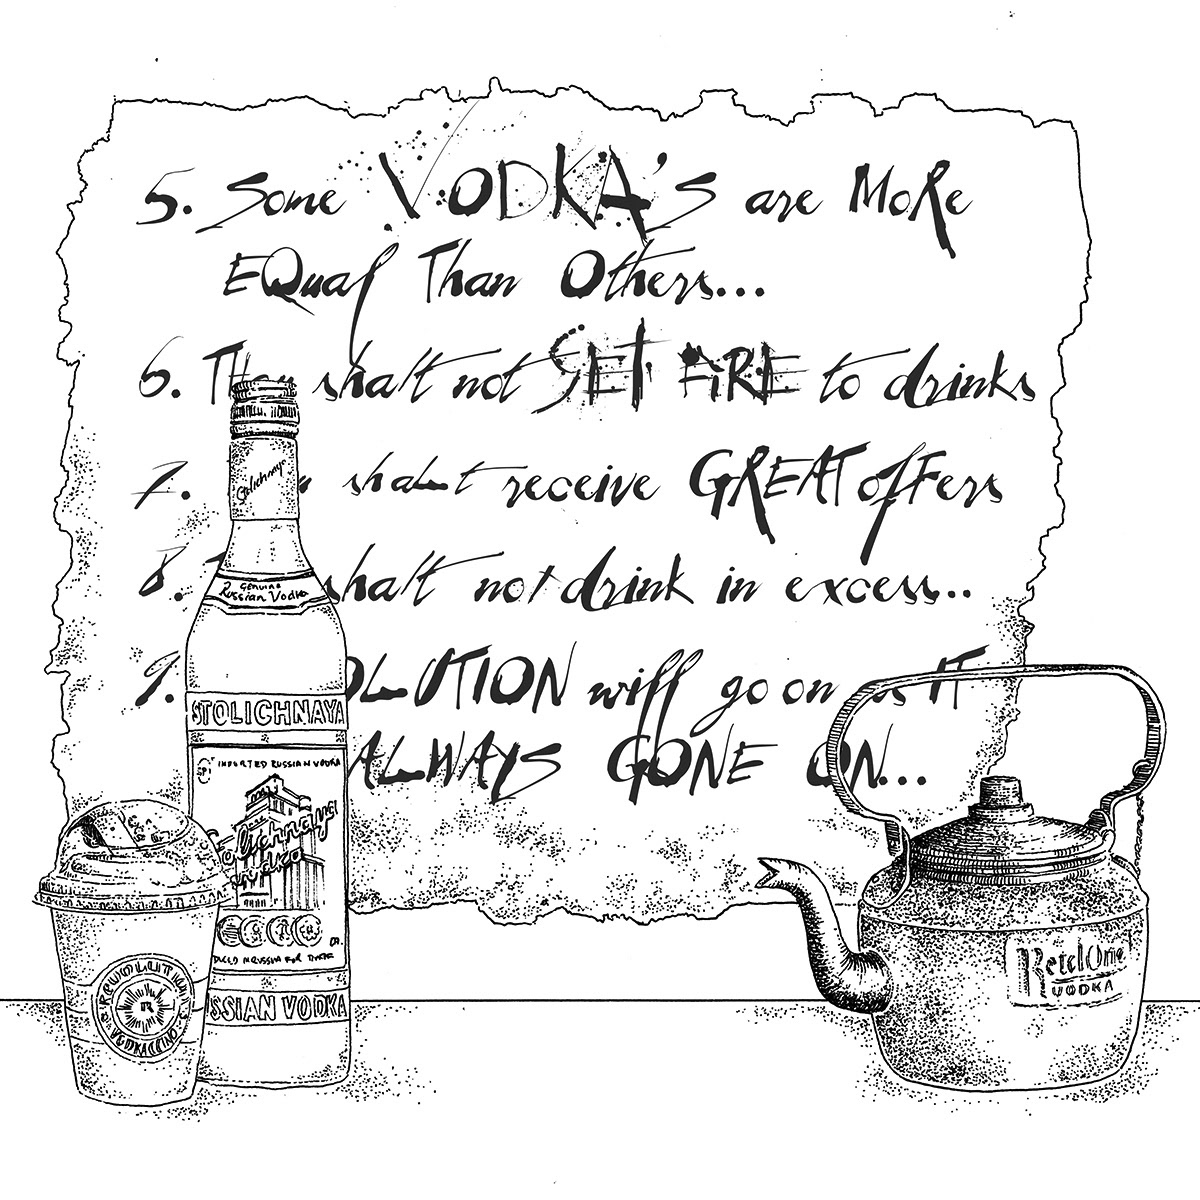 5. Some VODKA's are MoRe
EQual Than Others...
6. Thou shalt not SET FiRE to drinks
7. shalt receive GREAT offers
8. shalt not drink in excess..
9. OLUTION will go on as IT
ALWAYS GONE ON...
Stolichnaya
GENUINE
Russian Vodka
STOLICHNAYA
IMPORTED RUSSIAN VODKA
Stolichnaya
vodka
SSIAN VODKA
REVOLUTION
R
VODKA
Ketel One
VODKA